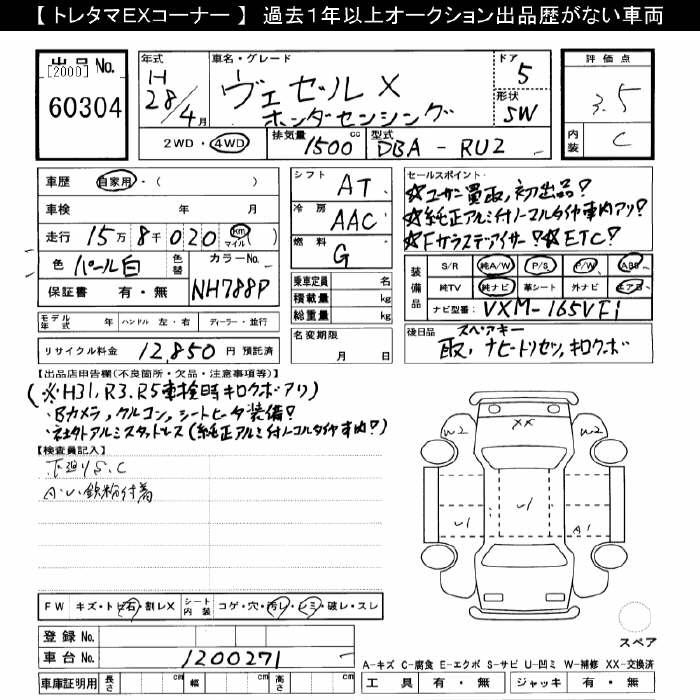 【 トレタマEXコーナー 】 過去１年以上オークション出品歴がない車両
出品No.
[2000]
60304
年式
H
28/4月
車名・グレード
ヴェゼル X
ホンダセンシング
ドア
5
形状
SW
評価点
3.5
内装
C
2WD・4WD
排気量
1500 cc
型式
DBA - RU2
車歴 自家用・( )
車検 年 月
走行 15万 8千 020 km マイル ( )
色 パール白 色替
カラーNo.
NH788P
保証書 有・無
モデル年式 年 ハンドル 左・右 ディーラー・並行
リサイクル料金 12,850 円 預託済
シフト AT
冷房 AAC
燃料 G
乗車定員 名
積載量 kg
総重量 kg
名変期限
月 日
セールスポイント
☆ユーザー買取,初出品!
☆純正アルミ付ノーマルタイヤ車内アリ!
☆Fガラスデアイサー!☆ETC!
装備品
S/R 純A/W P/S P/W ABS
純TV 純ナビ 革シート 外ナビ エアB
ナビ型番: VXM-165VFi
後日品 スペアキー
取,ナビ・ドリセツ,キロクボ
【出品店申告欄(不良箇所・欠品・注意事項等)】
(※H31,R3,R5車検時キロクボアリ)
・Bカメラ,クルコン,シートヒータ装備!
・社外アルミスタットレス(純正アルミ付ノーマルタイヤ車内!)
【検査員記入】
下廻りS.C
A・U・鉄粉付着
FW キズ・トビ石・割レX
シート内装 コゲ・穴・汚レ・シミ・破レ・スレ
登録No.
車台No. 1200271
車庫証明用 長さ cm 幅 cm 高さ cm
W2 XX W2
U1 U1 A1
スペア
A-キズ C-腐食 E-エクボ S-サビ U-凹ミ W-補修 XX-交換済
工具 有・無 ジャッキ 有・無